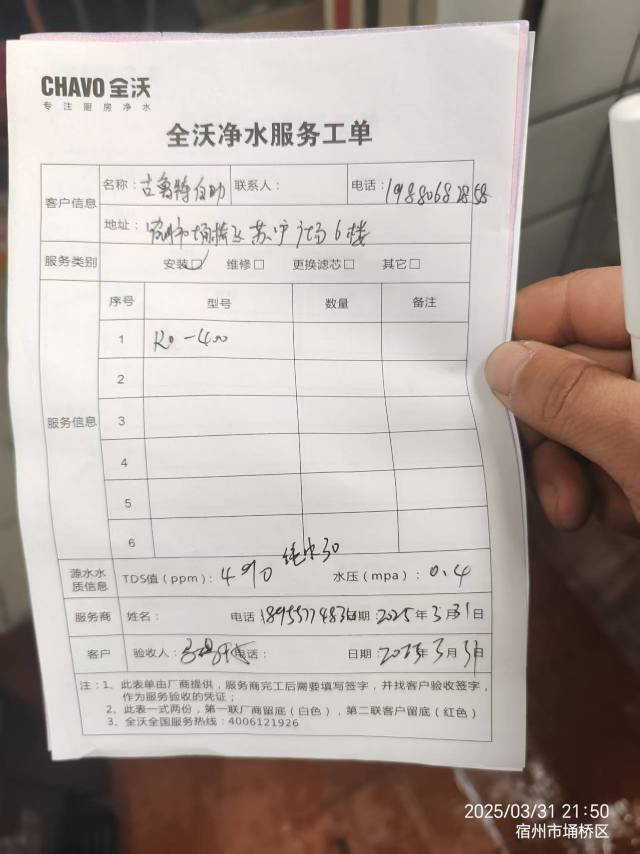 CHAVO 全沃
专注厨房净水
全沃净水服务工单
客户信息
名称：古鲁特自助 联系人： 电话：19880682858
地址：宿州市埇桥区苏宁广场6楼
服务类别 安装☑ 维修□ 更换滤芯□ 其它□
服务信息
序号 型号 数量 备注
1 Ro-400
2
3
4
5
6
纯水30
源水水质信息 TDS值（ppm）： 水压（mpa）：0.4
服务商 姓名： 电话 日期：2025年3月31日
客户 验收人： 电话： 日期：2025年3月31日
注：1、此表单由厂商提供，服务商完工后需要填写签字，并找客户验收签字，
作为服务验收的凭证；
2、此表一式两份，第一联厂商留底（白色），第二联客户留底（红色）
3、全沃全国服务热线：4006121926
2025/03/31 21:50
宿州市埇桥区